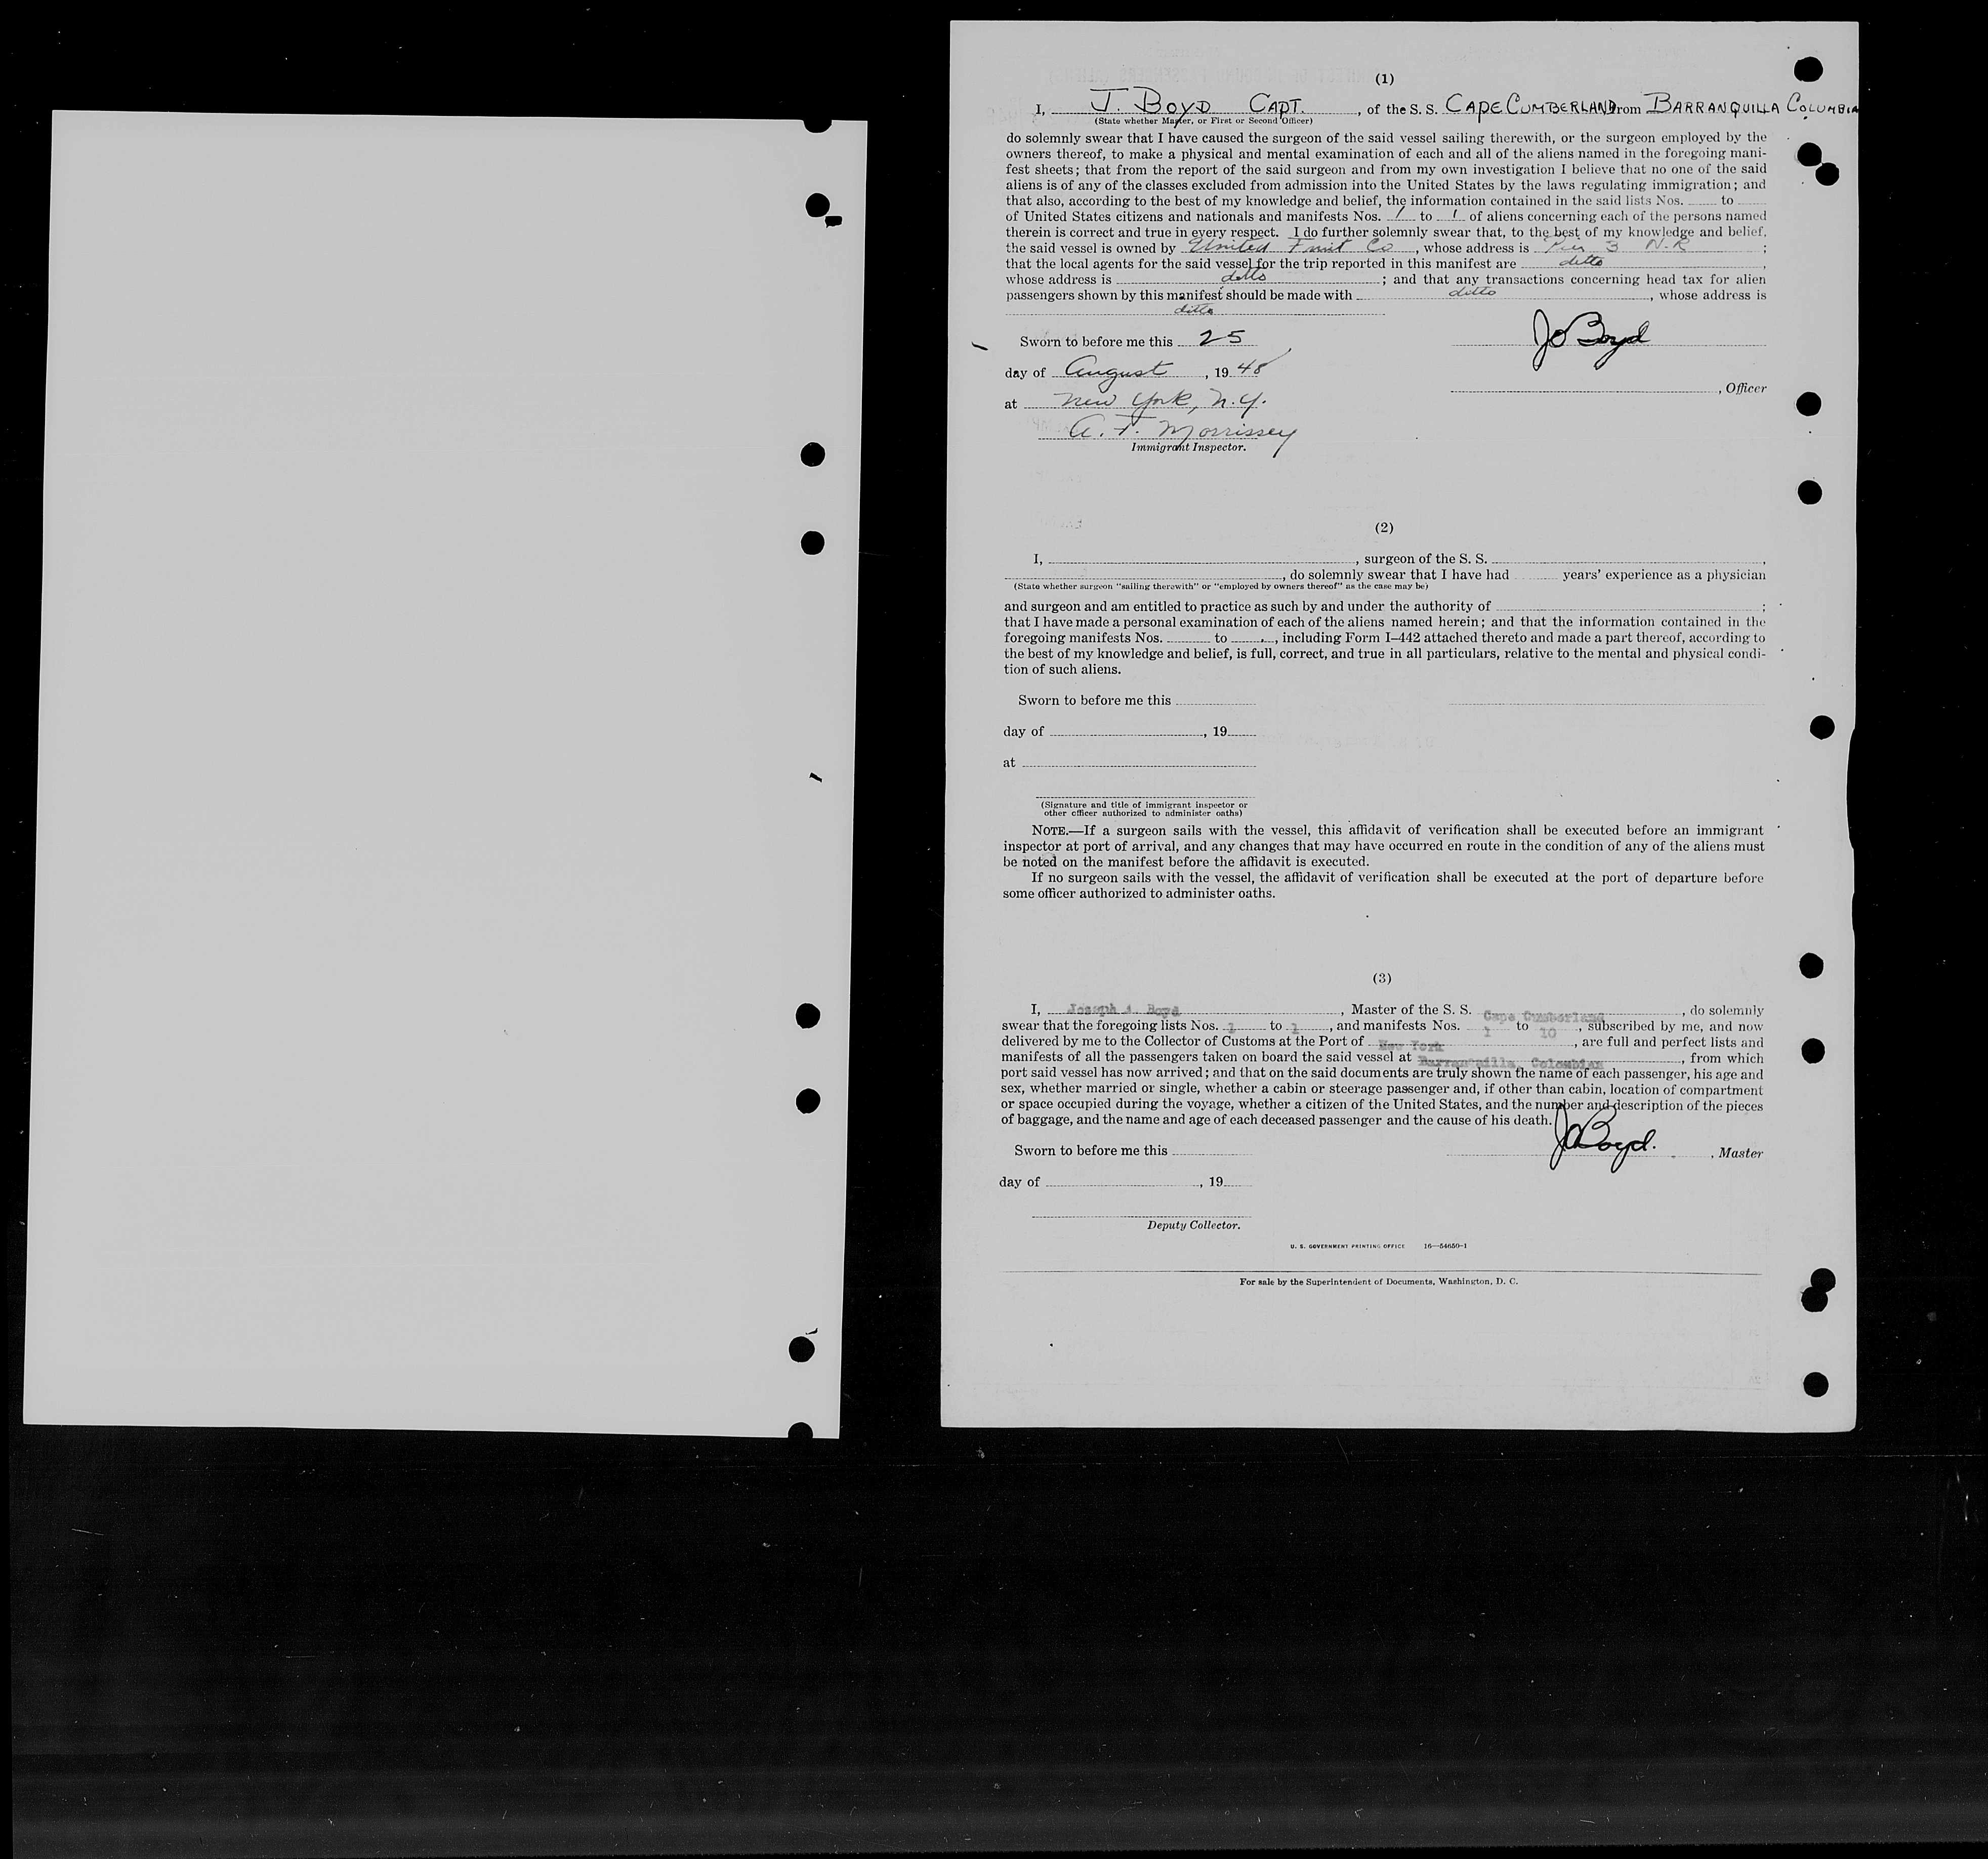 (1)
I, J. BOYD CAPT. , of the S. S. CAPE CUMBERLAND from BARRANQUILLA COLUMBIA
(State whether Master, or First or Second Officer)
do solemnly swear that I have caused the surgeon of the said vessel sailing therewith, or the surgeon employed by the
owners thereof, to make a physical and mental examination of each and all of the aliens named in the foregoing mani-
fest sheets; that from the report of the said surgeon and from my own investigation I believe that no one of the said
aliens is of any of the classes excluded from admission into the United States by the laws regulating immigration; and
that also, according to the best of my knowledge and belief, the information contained in the said lists Nos. to
of United States citizens and nationals and manifests Nos. 1 to 1 of aliens concerning each of the persons named
therein is correct and true in every respect. I do further solemnly swear that, to the best of my knowledge and belief,
the said vessel is owned by United Fruit Co , whose address is Pier 3 N.R ;
that the local agents for the said vessel for the trip reported in this manifest are ditto ,
whose address is ditto ; and that any transactions concerning head tax for alien
passengers shown by this manifest should be made with ditto , whose address is
ditto
Sworn to before me this 25
Jo Boyd
day of August , 19 48
, Officer
at New York, N.Y.
A. F. Morrissey
Immigrant Inspector.
(2)
I, , surgeon of the S. S. ,
, do solemnly swear that I have had years' experience as a physician
(State whether surgeon "sailing therewith" or "employed by owners thereof" as the case may be)
and surgeon and am entitled to practice as such by and under the authority of ;
that I have made a personal examination of each of the aliens named herein; and that the information contained in the
foregoing manifests Nos. to , including Form I–442 attached thereto and made a part thereof, according to
the best of my knowledge and belief, is full, correct, and true in all particulars, relative to the mental and physical condi-
tion of such aliens.
Sworn to before me this
day of , 19
at
(Signature and title of immigrant inspector or
other officer authorized to administer oaths)
NOTE.—If a surgeon sails with the vessel, this affidavit of verification shall be executed before an immigrant
inspector at port of arrival, and any changes that may have occurred en route in the condition of any of the aliens must
be noted on the manifest before the affidavit is executed.
If no surgeon sails with the vessel, the affidavit of verification shall be executed at the port of departure before
some officer authorized to administer oaths.
(3)
I, Joseph A. Boyd , Master of the S. S. Cape Cumberland , do solemnly
swear that the foregoing lists Nos. 1 to 1 , and manifests Nos. 1 to 10 , subscribed by me, and now
delivered by me to the Collector of Customs at the Port of New York , are full and perfect lists and
manifests of all the passengers taken on board the said vessel at Barranquilla, Colombian , from which
port said vessel has now arrived; and that on the said documents are truly shown the name of each passenger, his age and
sex, whether married or single, whether a cabin or steerage passenger and, if other than cabin, location of compartment
or space occupied during the voyage, whether a citizen of the United States, and the number and description of the pieces
of baggage, and the name and age of each deceased passenger and the cause of his death.
Sworn to before me this
JaBoyd. , Master
day of , 19
Deputy Collector.
U. S. GOVERNMENT PRINTING OFFICE 16—54650-1
For sale by the Superintendent of Documents, Washington, D. C.